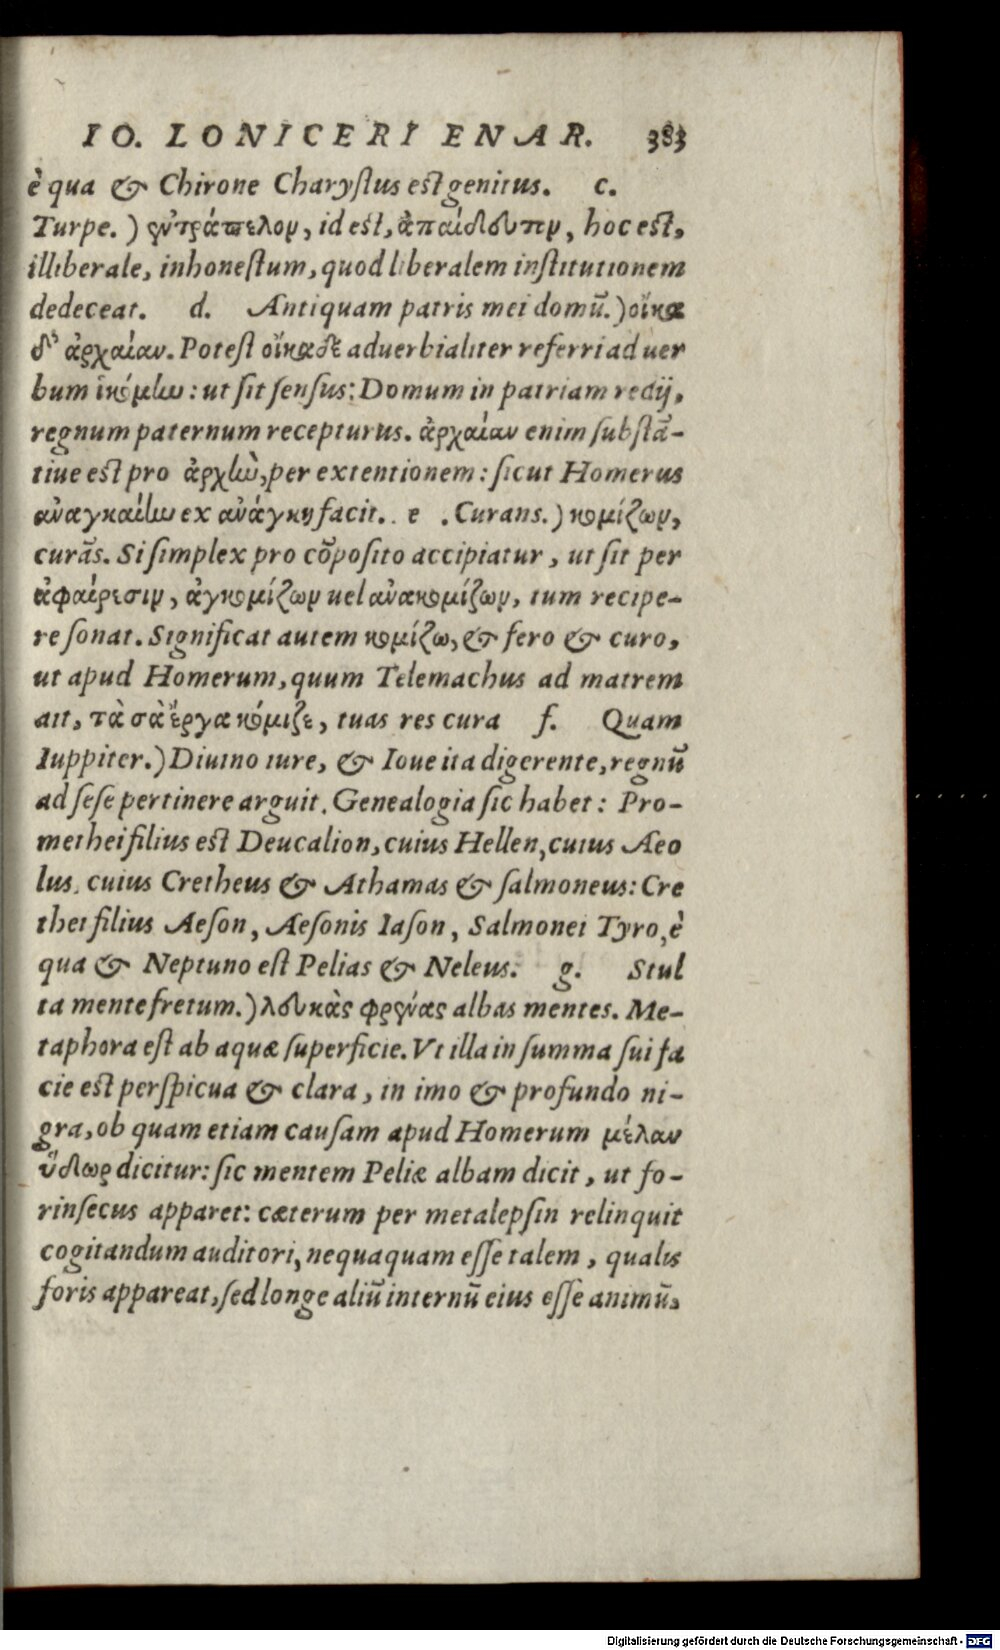 IO. LONICERI ENAR. 383
è qua & Chirone Charyſtus eſt genitus. c.
Turpe.) ἐντράπελον, id eſt, ἀπαίδευτον, hoc eſt,
illiberale, inhoneſtum, quod liberalem inſtitutionem
dedeceat. d. Antiquam patris mei domū.) οἴκα
δ' ἀρχαίαν. Poteſt οἴκαδε aduerbialiter referri ad uer
bum ἱκόμην: ut ſit ſenſus: Domum in patriam redij,
regnum paternum recepturus. ἀρχαίαν enim ſubſtā-
tiue eſt pro ἀρχὴν, per extentionem: ſicut Homerus
ἀναγκαίην ex ἀνάγκη facit. e. Curans.) κομίζων,
curās. Si ſimplex pro cōpoſito accipiatur, ut ſit per
ἀφαίρεσιν, ἀγκομίζων uel ἀνακομίζων, tum recipe-
re ſonat. Significat autem κομίζω, & fero & curo,
ut apud Homerum, quum Telemachus ad matrem
ait, τὰ σὰ ἔργα κόμιζε, tuas res cura f. Quam
Iuppiter.) Diuino iure, & Ioue ita digerente, regnū
ad ſeſe pertinere arguit. Genealogia ſic habet: Pro-
methei filius eſt Deucalion, cuius Hellen, cuius Aeo
lus, cuius Cretheus & Athamas & ſalmoneus: Cre
thei filius Aeſon, Aeſonis Iaſon, Salmonei Tyro, è
qua & Neptuno eſt Pelias & Neleus. g. Stul
ta mente fretum.) λευκὰς φρένας albas mentes. Me-
taphora eſt ab aquæ ſuperficie. Vt illa in ſumma ſui fa
cie eſt perſpicua & clara, in imo & profundo ni-
gra, ob quam etiam cauſam apud Homerum μέλαν
ὕδωρ dicitur: ſic mentem Peliæ albam dicit, ut fo-
rinſecus apparet: cæterum per metalepſin relinquit
cogitandum auditori, nequaquam eſſe talem, qualis
foris appareat, ſed longe aliū internū eius eſſe animū.
Digitalisierung gefördert durch die Deutsche Forschungsgemeinschaft - DFG